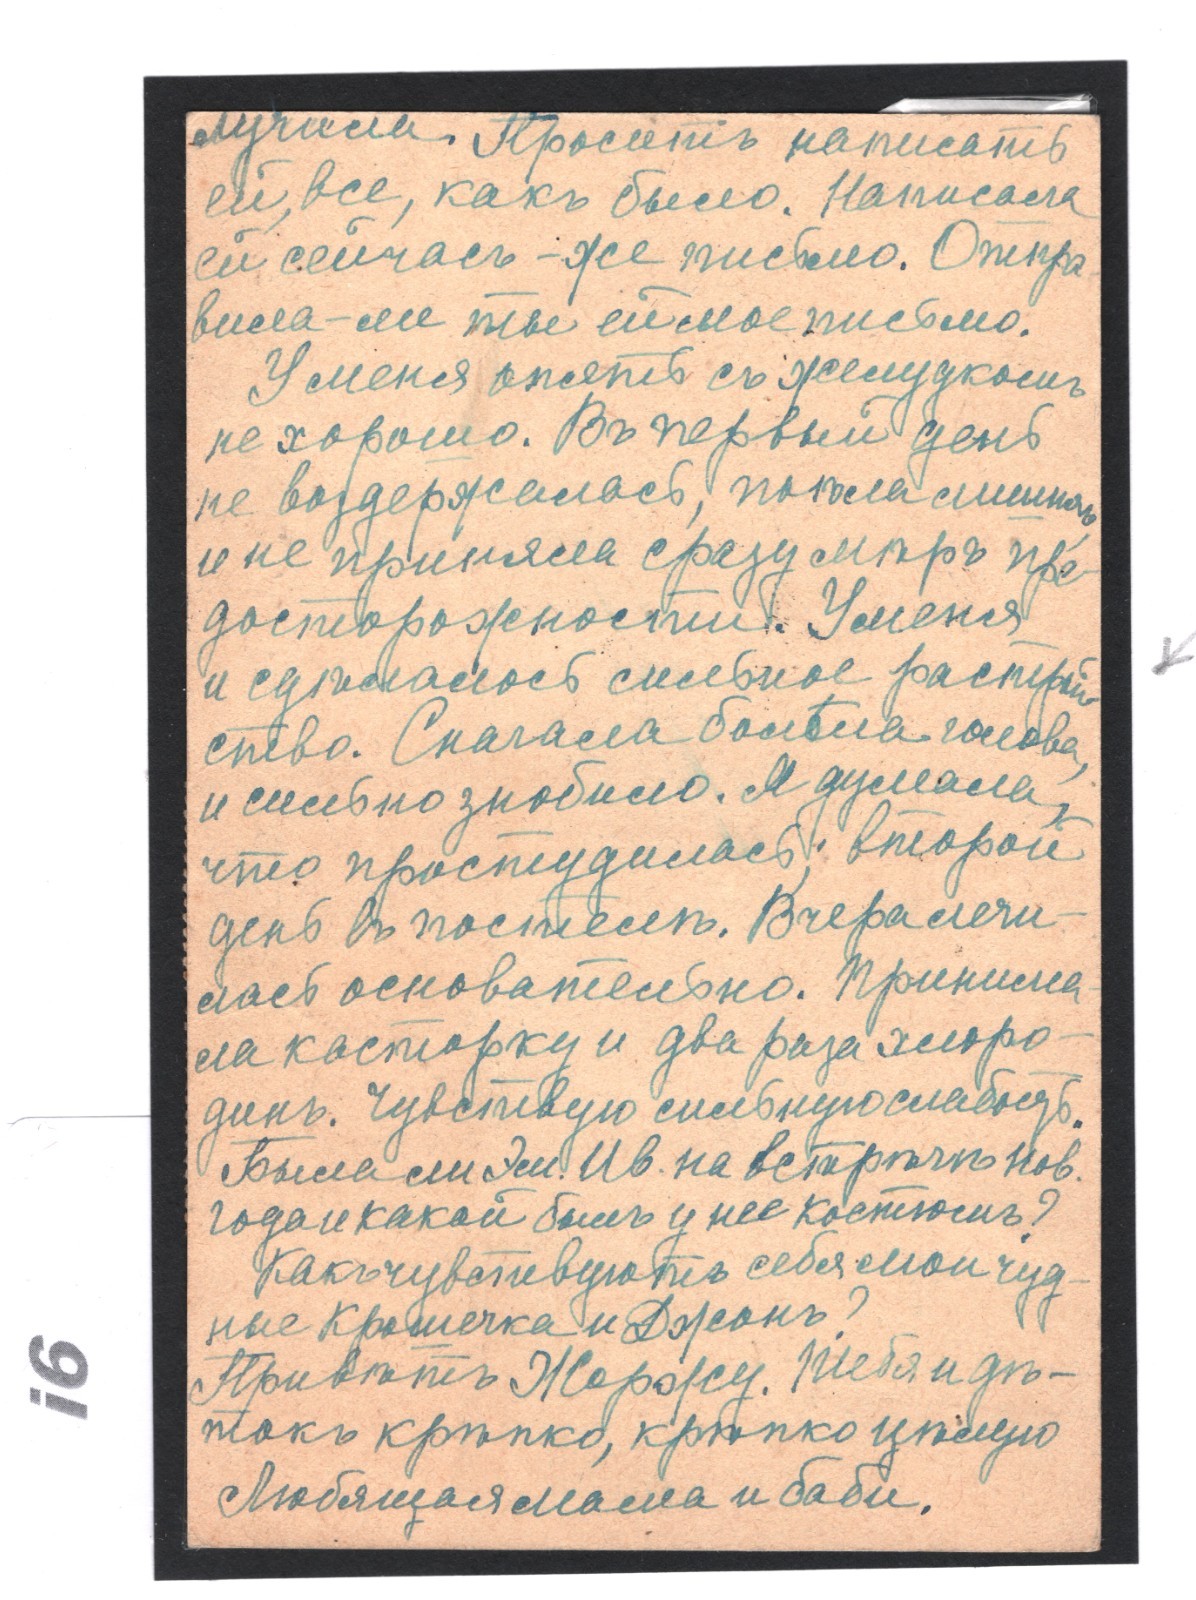 лучила. Проситъ написать
ей, все, какъ было. Написала
ей сейчасъ-же письмо. Отпра-
вила-ли ты ей мое письмо.
У меня опять съ желудкомъ
не хорошо. Въ первый день
не воздержалась, поѣла лишняго
и не приняла сразу мѣръ пре-
досторожности. У меня
и сдѣлалось сильное растрой-
ство. Сначала болѣла голова,
и сильно знобило. Я думала,
что простудилась; второй
день въ постелѣ. Вчера лечи-
лась основательно. Принима-
ла касторку и два раза хлоро-
динъ. Чувствую сильную слабость.
Была ли Эм. Ив. на встрѣчѣ нов.
года и какой былъ у нее костюмъ?
Какъ чувствуютъ себя мои чуд-
ные Крошечка и Джонъ?
Привѣтъ Жоржу. Тебя и дѣ-
токъ крѣпко, крѣпко цѣлую
Любящая мама и баби.
i6